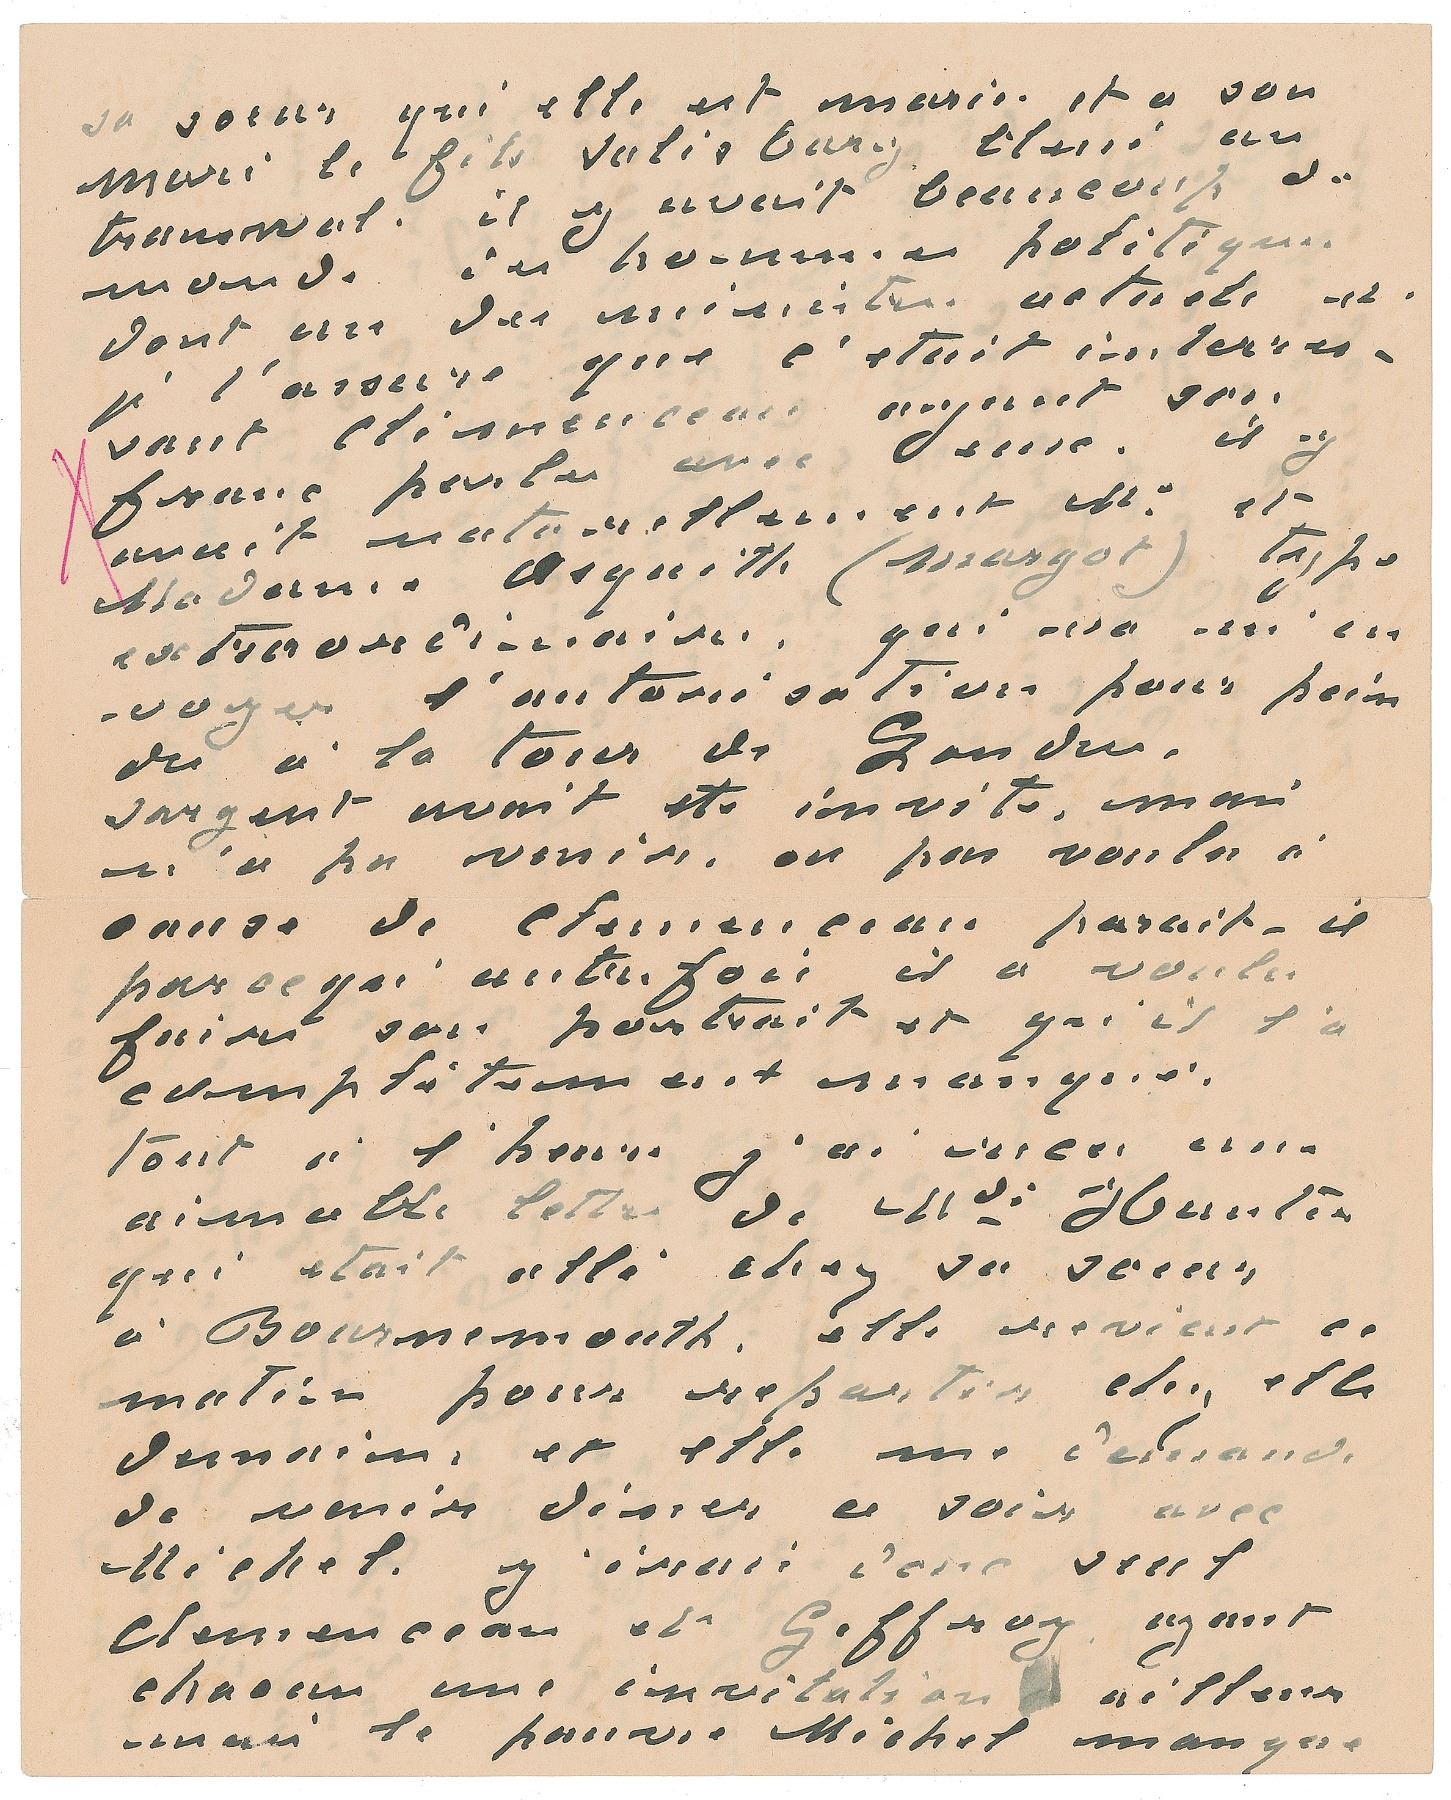 sa soeur qui elle est marie et a son
mari le fils Salisbury blessé au
transwal. il y avait beaucoup de
monde des hommes politiques
dont un des ministres actuels
je t'assure que c'etait interres-
sant Clemenceau ayant son
franc parler avec eux. il y
avait naturellement Mr et
Madame Asquith (Margot) type
extraordinaire, qui va m'en
voyer l'autorisation pour pein
dre à la tour de Londres.
Sargent avait ete invite, mais
n'a pu venir, ou pas voulu à
cause de Clemenceau parait-il
parcequ'autrefois il a voulu
faire son portrait et qu'il l'a
complètement manqué.
Tout à l'heure j'ai reçu une
aimable lettre de Mde Hunter
qui etait allé chez sa soeur
à Bournemouth, elle revient ce
matin pour repartir chez elle
demain, et elle me demande
de venir diner ce soir avec
Michel. j'irai donc seul
Clemenceau et Geffroy ayant
chacun une invitation ailleurs
mais le pauvre Michel manque